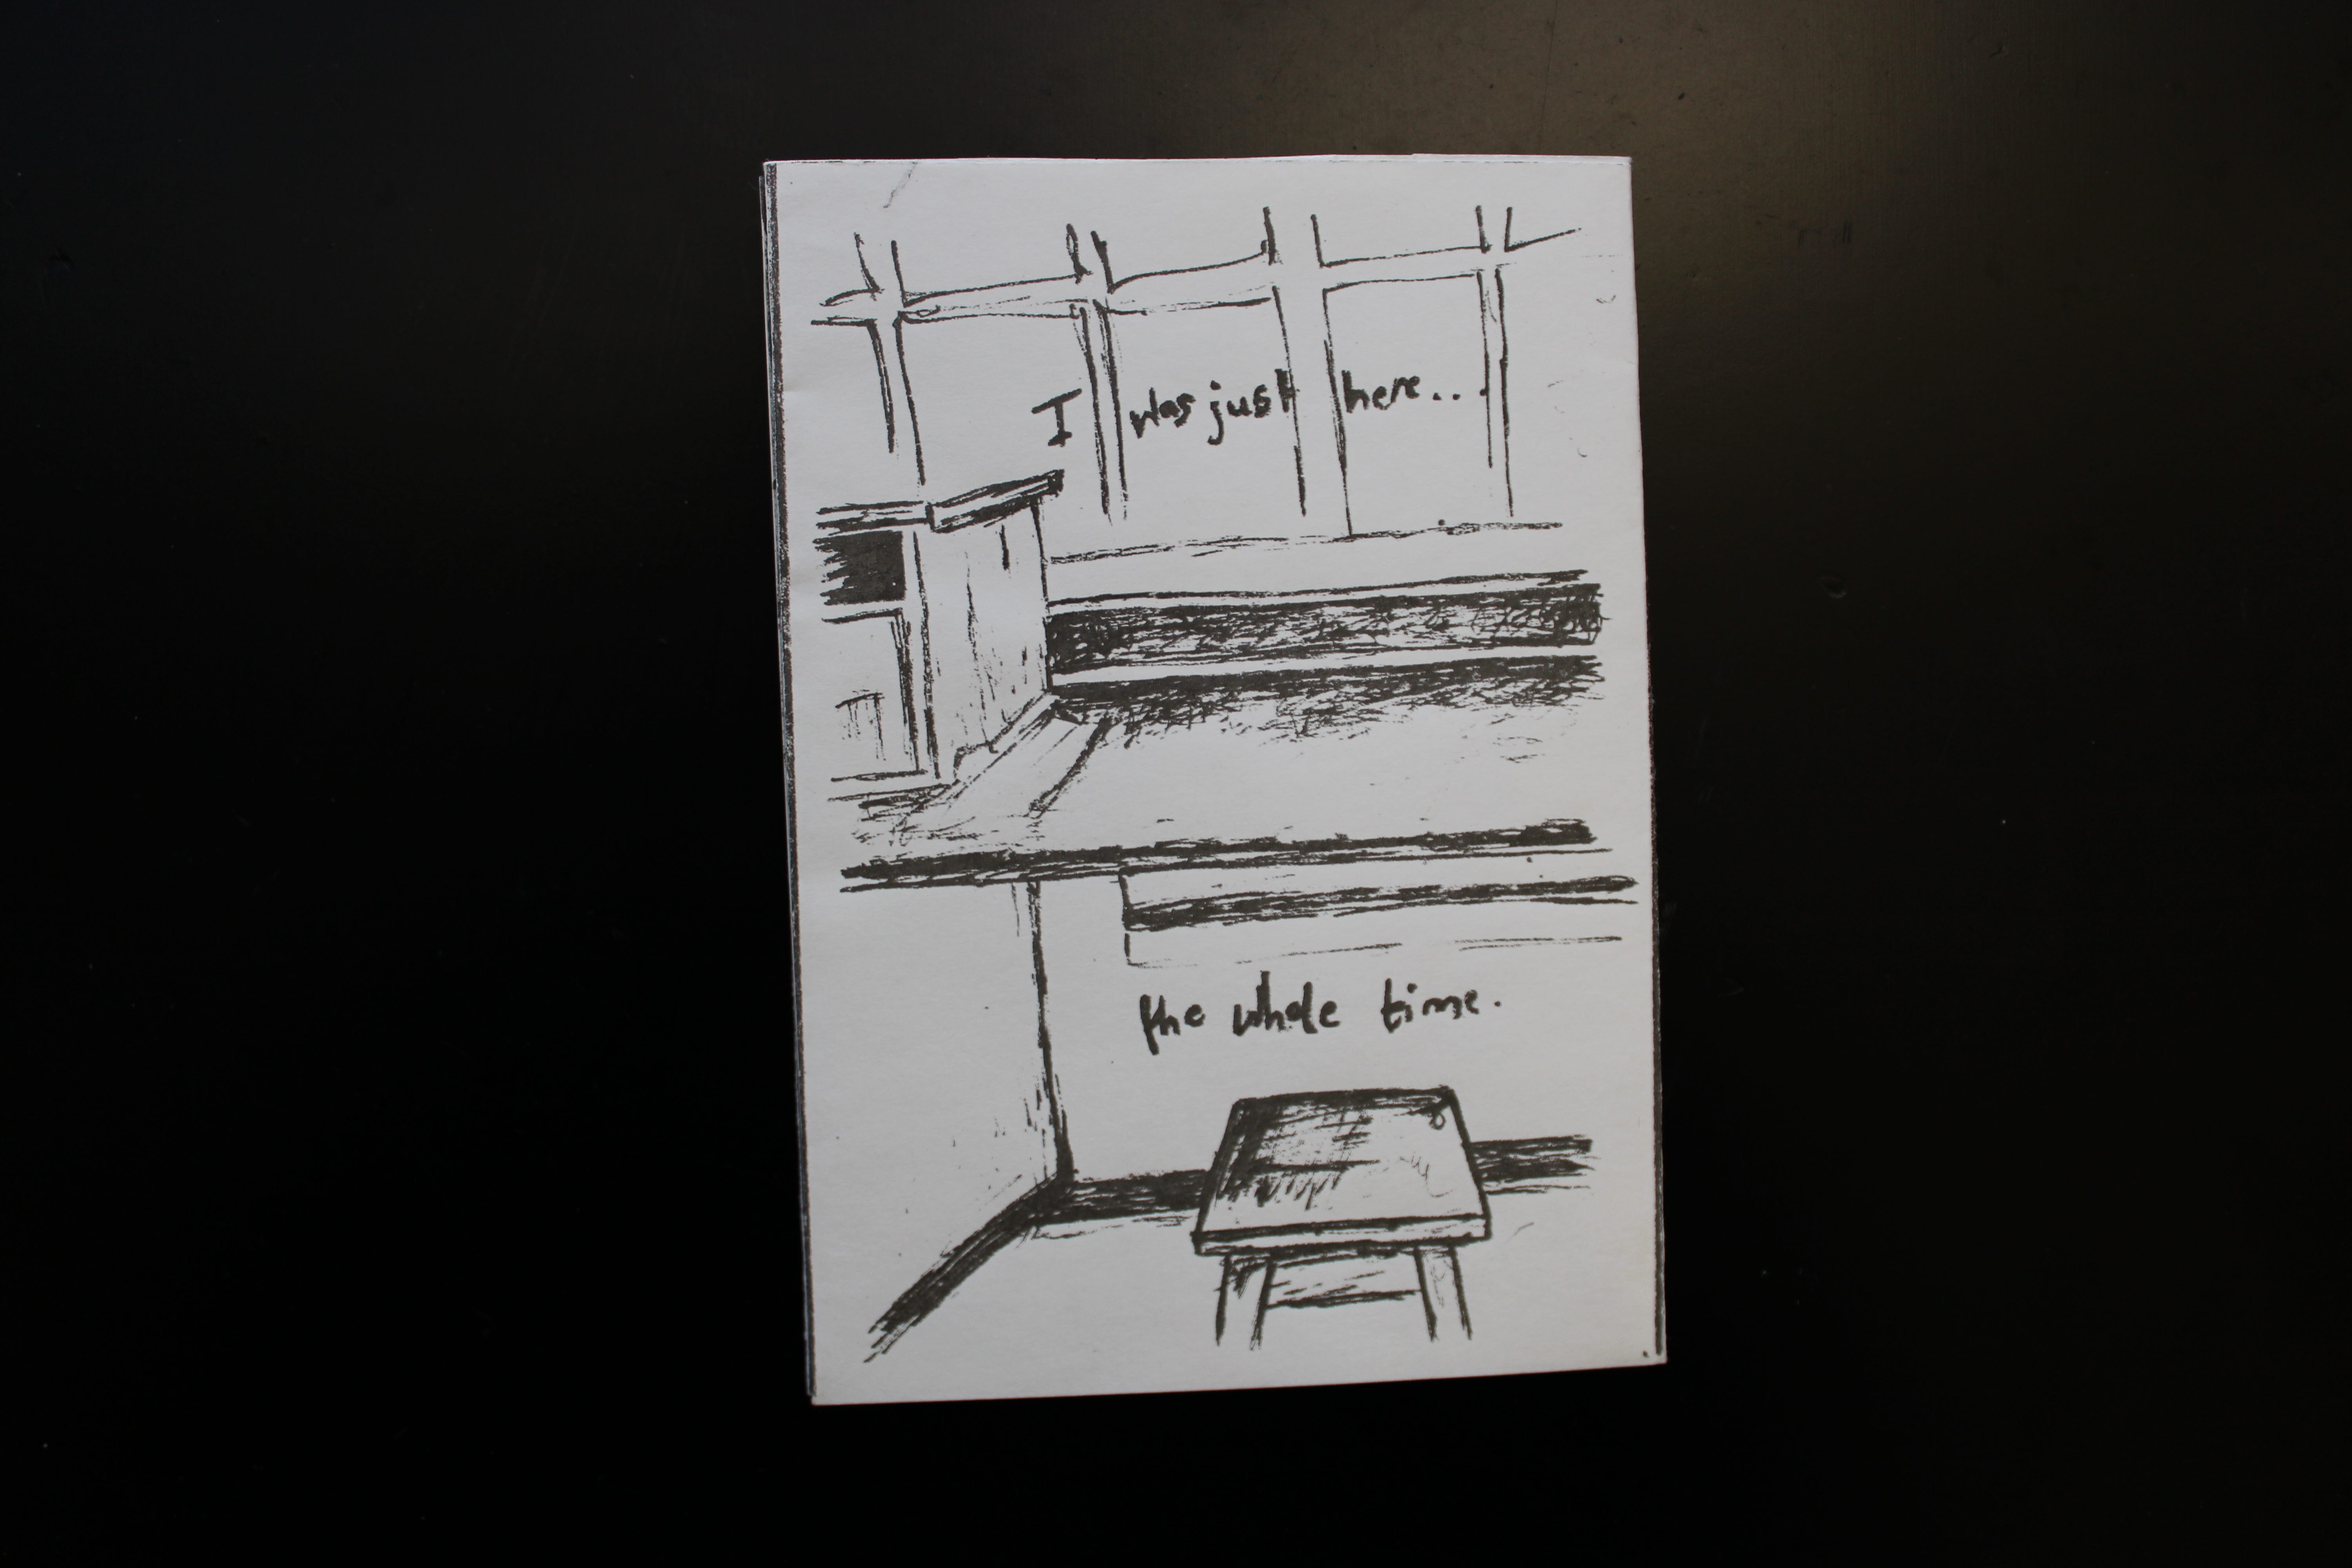 I was just here...
the whole time.